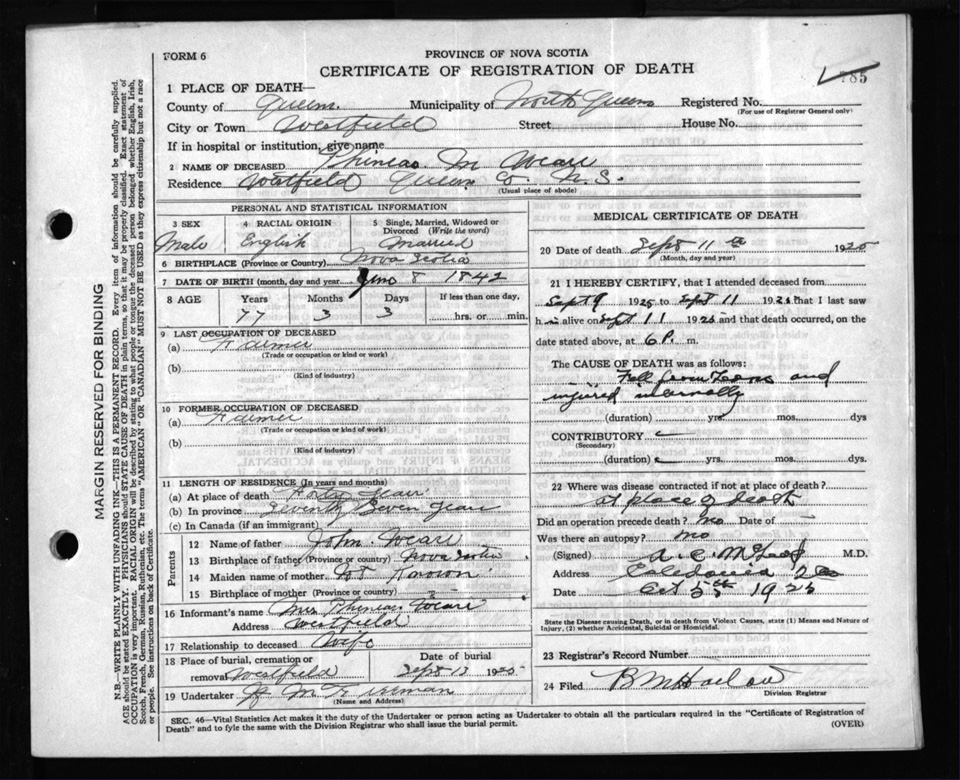 FORM 6
PROVINCE OF NOVA SCOTIA
CERTIFICATE OF REGISTRATION OF DEATH
785
1 PLACE OF DEATH—
County of Queens. Municipality of North Queens Registered No.
(For use of Registrar General only)
City or Town Westfield Street House No.
If in hospital or institution, give name
2 NAME OF DECEASED Phineas M Weare
Residence Westfield Queens Co. N.S.
(Usual place of abode)
PERSONAL AND STATISTICAL INFORMATION
3 SEX 4 RACIAL ORIGIN 5 Single, Married, Widowed or Divorced (Write the word)
Male English Married
6 BIRTHPLACE (Province or Country) Nova Scotia
7 DATE OF BIRTH (month, day and year) June 8 1842
8 AGE Years Months Days If less than one day,
77 3 3 hrs. or min.
9 LAST OCCUPATION OF DECEASED
(a) Farmer
(Trade or occupation or kind or work)
(b)
(Kind of industry)
10 FORMER OCCUPATION OF DECEASED
(a) Farmer
(Trade or occupation or kind of work)
(b)
(Kind of industry)
11 LENGTH OF RESIDENCE (In years and months)
(a) At place of death Forty years
(b) In province Seventy Seven years
(c) In Canada (if an immigrant)
Parents
12 Name of father John Weare
13 Birthplace of father (Province or country) Nova Scotia
14 Maiden name of mother Not Known
15 Birthplace of mother (Province or country)
16 Informant's name Mrs Phineas Weare
Address Westfield
17 Relationship to deceased Wife
18 Place of burial, cremation or removal Westfield Date of burial Sept 13 1925
19 Undertaker
(Name and Address)
MEDICAL CERTIFICATE OF DEATH
20 Date of death Sept 11th 1925
(Month, day and year)
21 I HEREBY CERTIFY, that I attended deceased from
Sept 9 1925 to Sept 11 1925 that I last saw
him alive on Sept 11 1925 and that death occurred, on
date stated above, at 6 P. m.
The CAUSE OF DEATH was as follows:
Fall from and
injured internally
(duration) yrs. mos. dys
CONTRIBUTORY
(Secondary)
(duration) yrs. mos. dys.
22 Where was disease contracted if not at place of death?
at place of death
Did an operation precede death? No Date of
Was there an autopsy? No
(Signed) A. C. M.D.
Address Caledonia
Date Oct 5th 1925
State the Disease causing Death, or in death from Violent Causes, state (1) Means and Nature of
Injury, (2) whether Accidental, Suicidal or Homicidal.
23 Registrar's Record Number
24 Filed
Division Registrar
SEC. 46—Vital Statistics Act makes it the duty of the Undertaker or person acting as Undertaker to obtain all the particulars required in the "Certificate of Registration of
Death" and to fyle the same with the Division Registrar who shall issue the burial permit. (OVER)
MARGIN RESERVED FOR BINDING
N.B.—WRITE PLAINLY WITH UNFADING INK—THIS IS A PERMANENT RECORD. Every item of information should be carefully supplied.
AGE should be stated EXACTLY. PHYSICIANS should STATE CAUSE OF DEATH in plain terms, so that it may be properly classified. Exact statement of
OCCUPATION is very important. RACIAL ORIGIN will be described by stating to what people or tongue the deceased person belonged whether English, Irish,
Scotch, French, German, Russian, Ruthenian, etc. The terms "AMERICAN" OR "CANADIAN" MUST NOT BE USED as they express citizenship but not a race
or people. See instructions on back of Certificate.